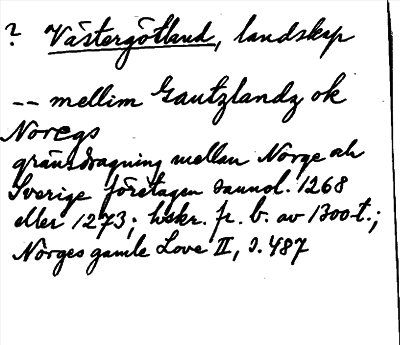 ? Västergötland, landskap
-- mellim Gautzlandz ok
Noregs
gränsdragning mellan Norge och
Sverige företagen sannol. 1268
eller 1273; hskr. fr. b. av 1300-t.;
Norges gamle Love II, s. 487